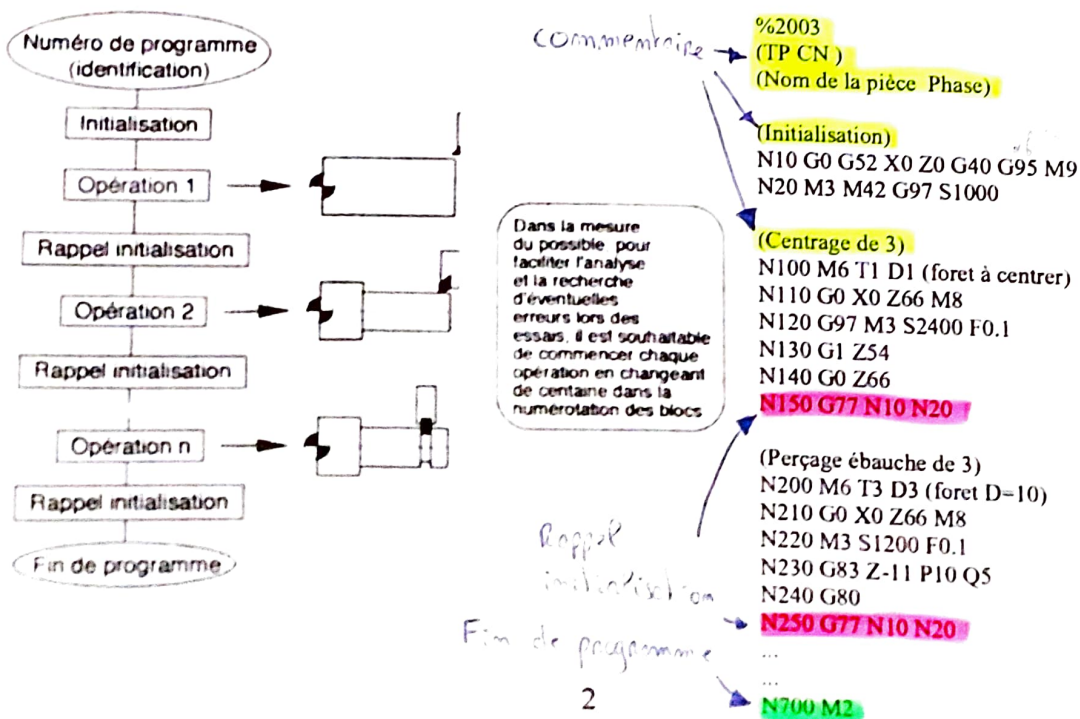 Numéro de programme
(identification)
Initialisation
Opération 1
Rappel initialisation
Opération 2
Rappel initialisation
Opération n
Rappel initialisation
Fin de programme
Dans la mesure
du possible pour
faciliter l'analyse
et la recherche
d'éventuelles
erreurs lors des
essais, il est souhaitable
de commencer chaque
opération en changeant
de centaine dans la
numérotation des blocs
commentaire
%2003
(TP CN )
(Nom de la pièce Phase)
(Initialisation)
N10 G0 G52 X0 Z0 G40 G95 M9
N20 M3 M42 G97 S1000
(Centrage de 3)
N100 M6 T1 D1 (foret à centrer)
N110 G0 X0 Z66 M8
N120 G97 M3 S2400 F0.1
N130 G1 Z54
N140 G0 Z66
N150 G77 N10 N20
(Perçage ébauche de 3)
N200 M6 T3 D3 (foret D=10)
N210 G0 X0 Z66 M8
N220 M3 S1200 F0.1
N230 G83 Z-11 P10 Q5
N240 G80
N250 G77 N10 N20
...
...
N700 M2
Rappel
initialisation
Fin de programme
2